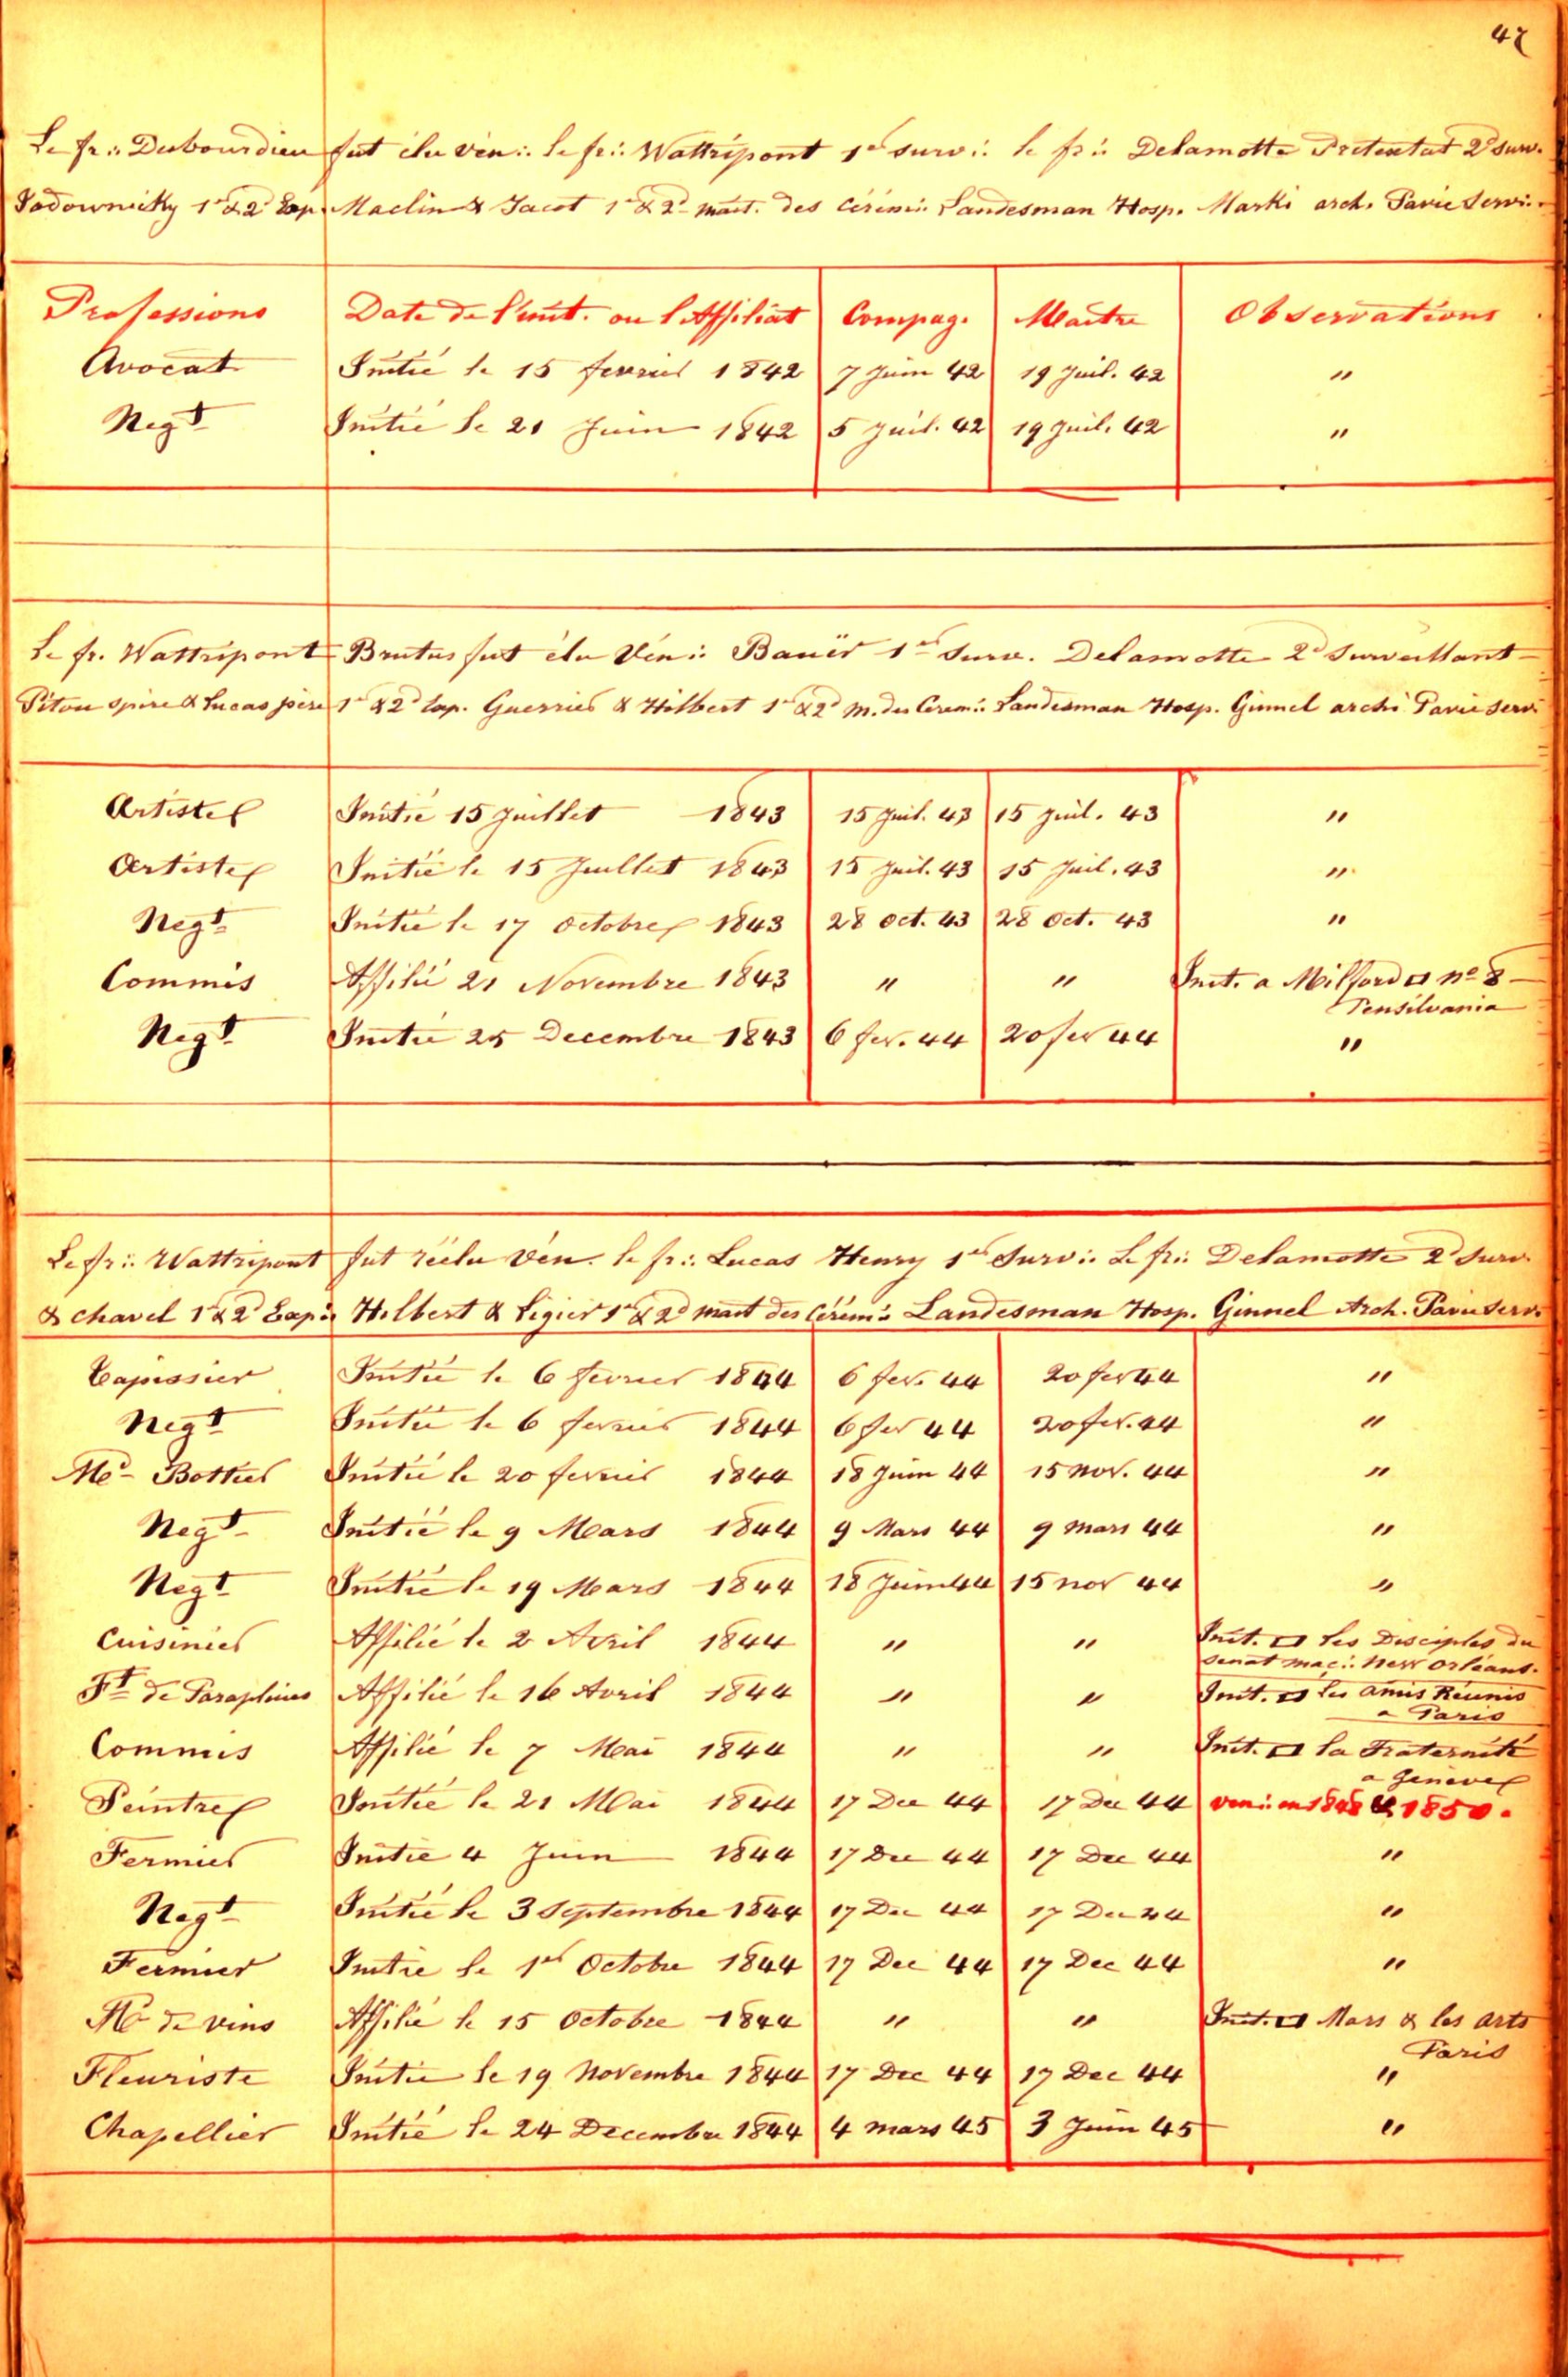 47
Le fr∴ Dubourdieu fut élu vén∴ le fr∴ Wattripont 1er surv∴ le fr∴ Delamotte Pretextat 2d surv.
Sadownicky 1er & 2d Exp. Maclin & Jacot 1er & 2d mait. des cérém∴ Landesman Hosp. Marki arch. Parie Serv∴
Professions Date de l'init. ou l'Affiliat Compag. Maitre Observations
Avocat Initié le 15 fevrier 1842 7 Juin 42 19 Juil. 42 "
Negt Initié le 21 Juin 1842 5 Juil. 42 19 Juil. 42 "
Le fr. Wattripont Brutus fut élu Vén∴ Bauër 1er Surv. Delamotte 2d Surveillant
Piton spire & Lucas père 1er & 2d Exp. Guerrier & Hilbert 1er & 2d m. des Cerem∴ Landesman Hosp. Ginnel archi Parie Serv∴
Artiste Initié 15 Juillet 1843 15 Juil. 43 15 Juil. 43 "
Artiste Initié le 15 Juillet 1843 15 Juil. 43 15 Juil. 43 "
Negt Initié le 17 Octobre 1843 28 Oct. 43 28 Oct. 43 "
Commis Affilié 21 Novembre 1843 " " Init. a Milford □ no 8
Pensilvania
Negt Initié 25 Decembre 1843 6 fev. 44 20 fev 44 "
Le fr∴ Wattripont fut réélu Vén. le fr∴ Lucas Henry 1er Surv∴ Le fr∴ Delamotte 2d Surv.
& Chavel 1er & 2d Exp∴ Hilbert & Ligier 1er & 2d mait des Cérém∴ Landesman Hosp. Ginnel Arch. Parie Serv.
Tapissier Initié le 6 fevrier 1844 6 fev. 44 20 fev 44 "
Negt Initié le 6 fevrier 1844 6 fev 44 20 fev. 44 "
Md Bottier Initié le 20 fevrier 1844 18 Juin 44 15 Nov. 44 "
Negt Initié le 9 Mars 1844 9 Mars 44 9 Mars 44 "
Negt Initié le 19 Mars 1844 18 Juin 44 15 nov 44 "
Cuisinier Affilié le 2 Avril 1844 " " Init. □ Les Disciples du
Senat maç∴ New Orléans.
Ft de Parapluies Affilié le 16 Avril 1844 " " Init. □ les Amis Réunis
a Paris
Commis Affilié le 7 Mai 1844 " " Init. □ la Fraternité
a Geneve
Peintre Initié le 21 Mai 1844 17 Dec 44 17 Dec 44 ven∴ en 1848 & 1850.
Fermier Initié 4 Juin 1844 17 Dec 44 17 Dec 44 "
Negt Initié le 3 Septembre 1844 17 Dec 44 17 Dec 44 "
Fermier Initié le 1er Octobre 1844 17 Dec 44 17 Dec 44 "
Md de vins Affilié le 15 Octobre 1844 " " Init. □ Mars & les Arts
Paris
Fleuriste Initié le 19 Novembre 1844 17 Dec 44 17 Dec 44 "
Chapellier Initié le 24 Decembre 1844 4 Mars 45 3 Juin 45 "